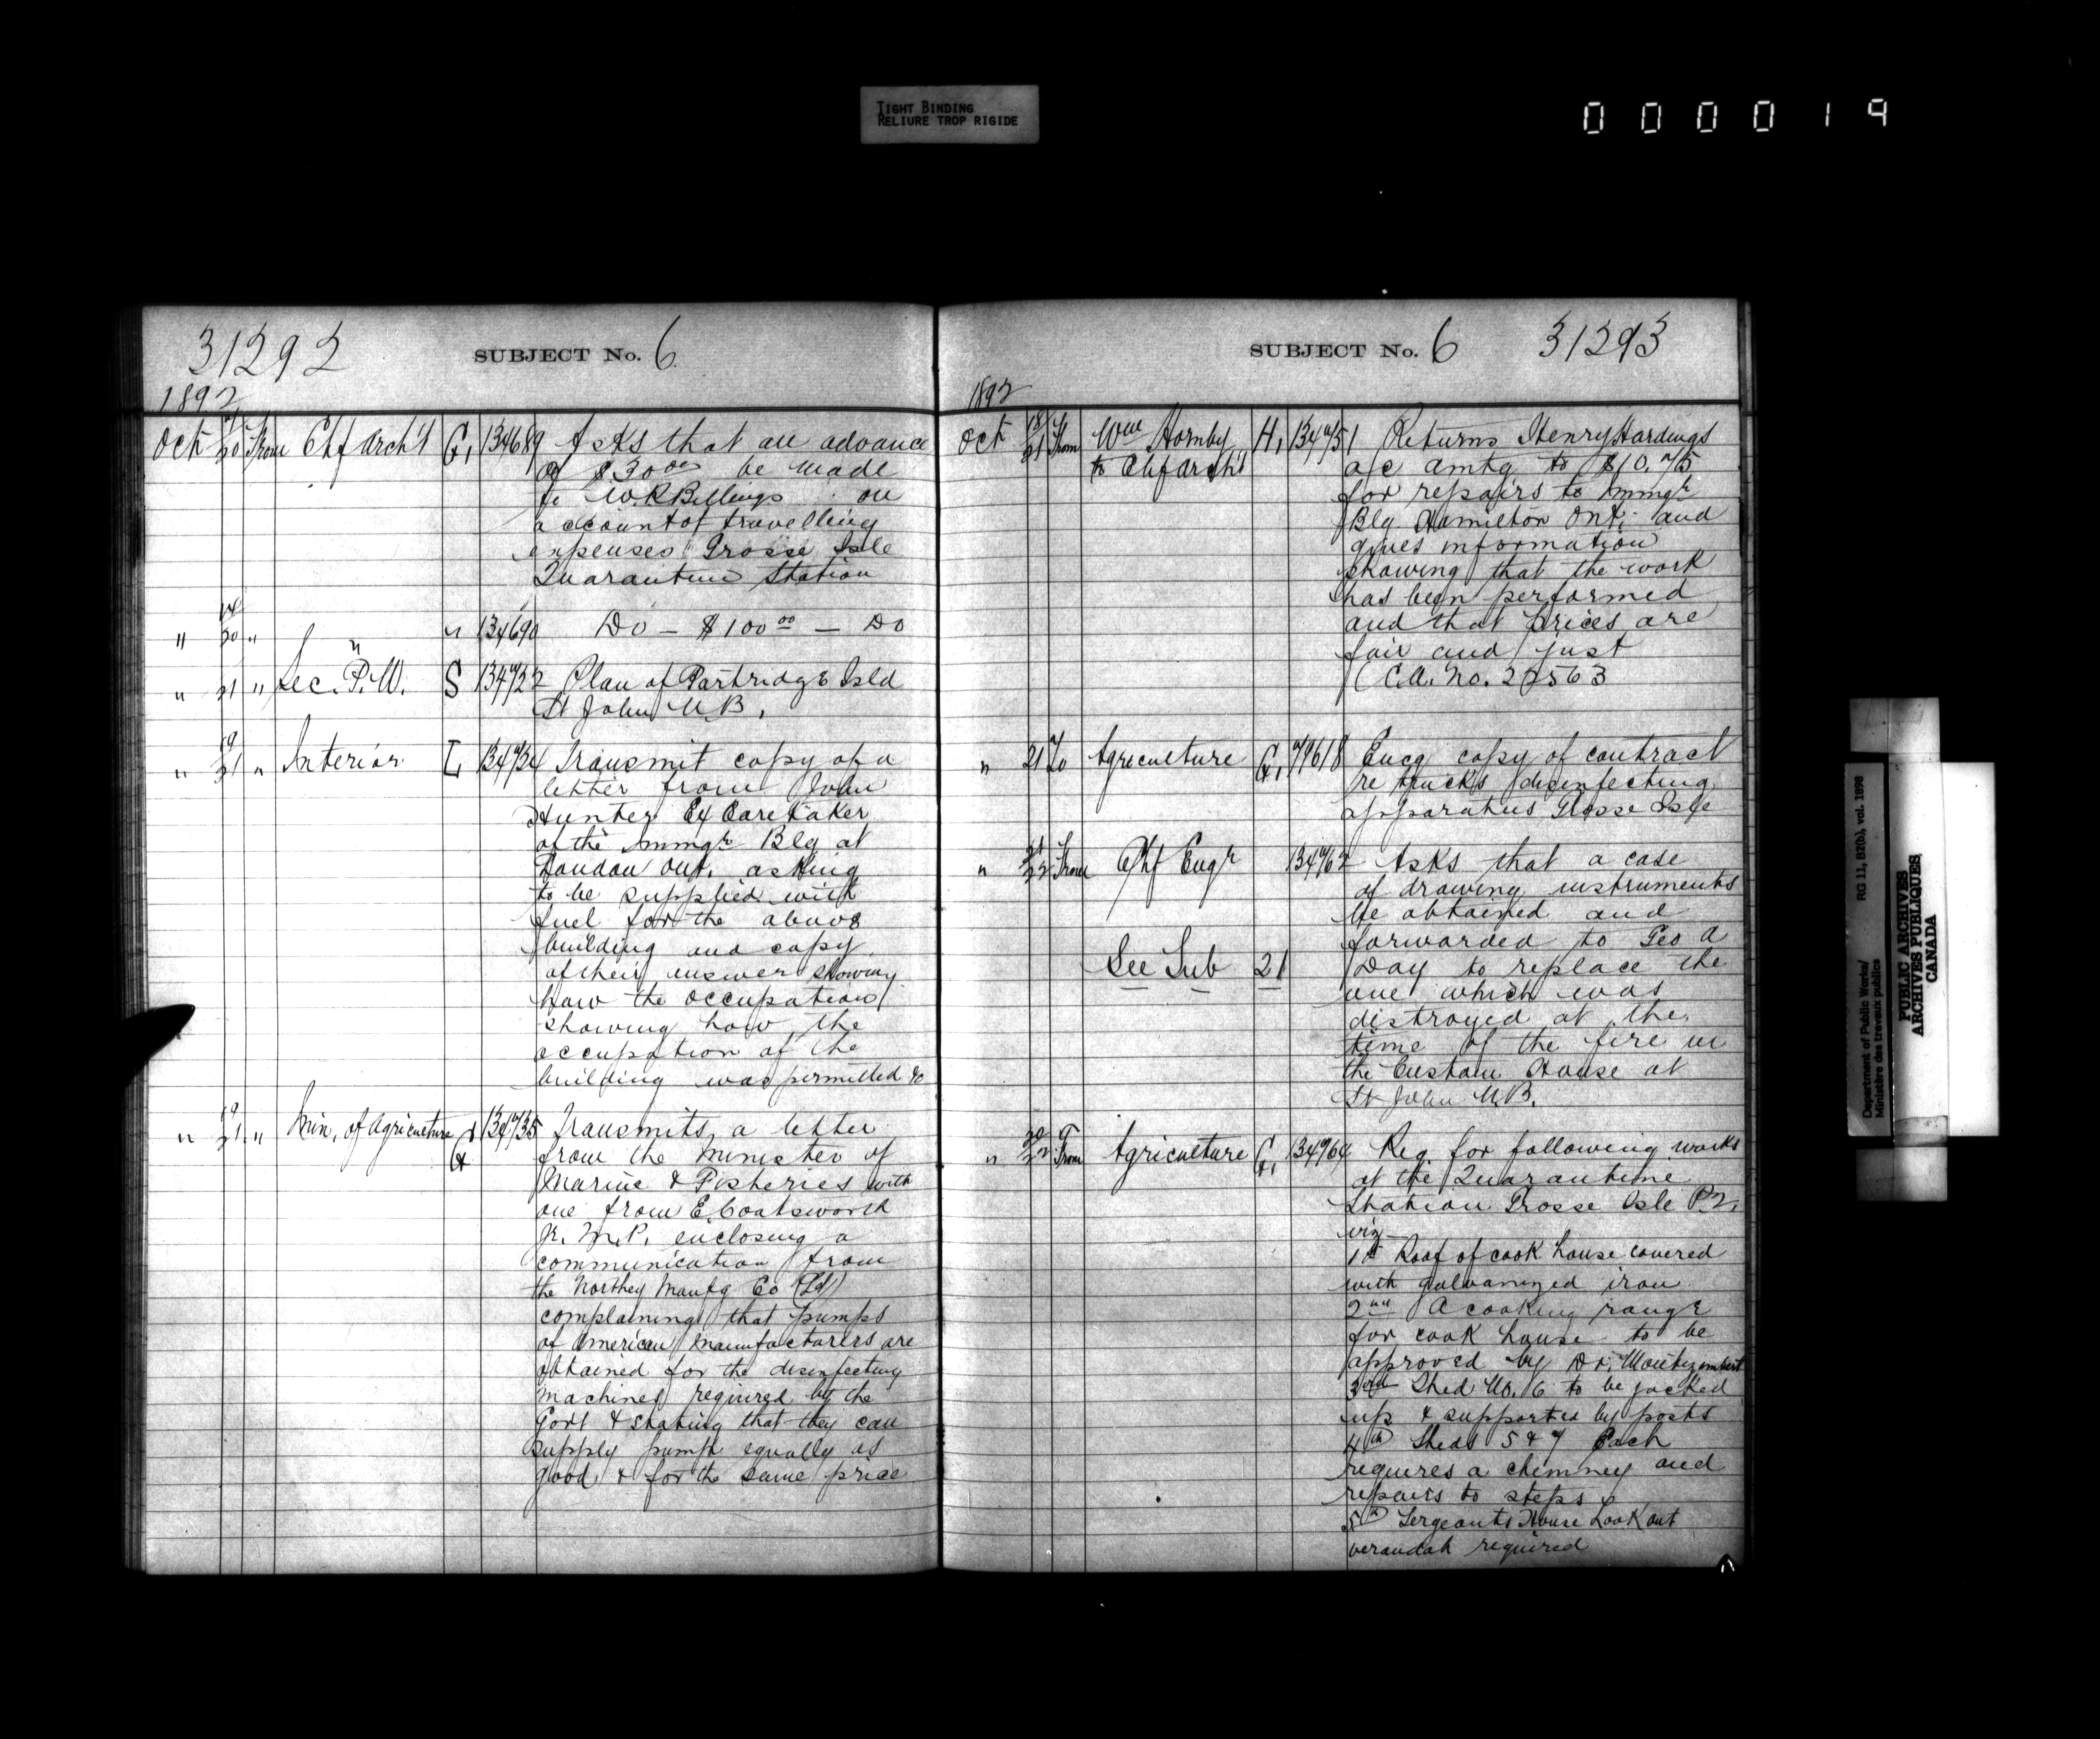 TIGHT BINDING
RELIURE TROP RIGIDE
000019
31292
SUBJECT No. 6.
1892
Oct 20 From Chf Arch't G. 134689 Asks that an advance
of $30 00 be made
to W.R Billings on
account of travelling
expenses Grosse Isle
Quarantine Station
" 14/20 " " " 134690 Do — $100 00 — Do
" 21 " Sec. P.W. S 134722 Plan of Partridge Isld
St John N.B.
" 19/21 " Interior L 134734 Transmit copy of a
letter from John
Hunter Ex Caretaker
of the Immgr Blg at
London Ont. asking
to be supplied with
fuel for the above
building and copy
of their answer showing
how the occupation
showing how the
occupation of the
building was permitted &c
" 19/21 " Min. of Agriculture & G 134735 Transmits a letter
from the Minister of
Marine & Fisheries with
one from E. Coatsworth
Jr. M.P. enclosing a
communication from
the Northey Manfg Co (Ld)
complaining that pumps
of American Manufacturers are
obtained for the disinfecting
machines required by the
Govt & stating that they can
supply pump equally as
good & for the same price
SUBJECT No. 6 31293
1892
Oct 18/21 From Wm Hornby H. 134751 Returns Henry Hardings
to Chf Arch't a/c amtg to $10.75
for repairs to Immgr
Blg Hamilton Ont. and
gives information
showing that the work
has been performed
and that prices are
fair and just
(C.A. No. 22563
" 21 To Agriculture G. 79618 Encg copy of contract
re trucks disinfecting
apparatus Grosse Isle
" 21/22 From Chf Engr 134762 Asks that a case
of drawing instruments
be obtained and
forwarded to Geo A
See Sub 21 Day to replace the
one which was
distroyed at the
time of the fire in
the Custom House at
St John N.B.
" 20/22 From Agriculture G. 134764 Req. for following works
at the Quarantine
Station Grosse Isle P.Q.
viz
1st Roof of cook house covered
with galvanized iron
2nd A cooking range
for cook house to be
approved by Dr. Montizambert
3rd Shed No. 6 to be jacked
up & supported by posts
4th Sheds 5 & 7 Each
requires a chimney and
repairs to steps
5th Sergeants House Look out
verandah required
Department of Public Works/ RG 11, B2(b), vol. 1898
Ministère des travaux publics
PUBLIC ARCHIVES
ARCHIVES PUBLIQUES
CANADA